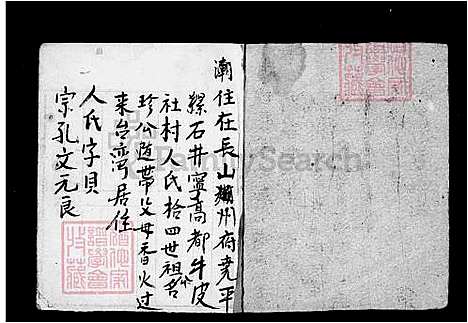 潮住在長山潮州府尭平
縣石井寧高都牛皮
社村人氏拾四世祖名
珍公随帶父母香火过
來台湾居住
人氏字貝
宗孔文元良
FamilySearch
譜學會
收藏